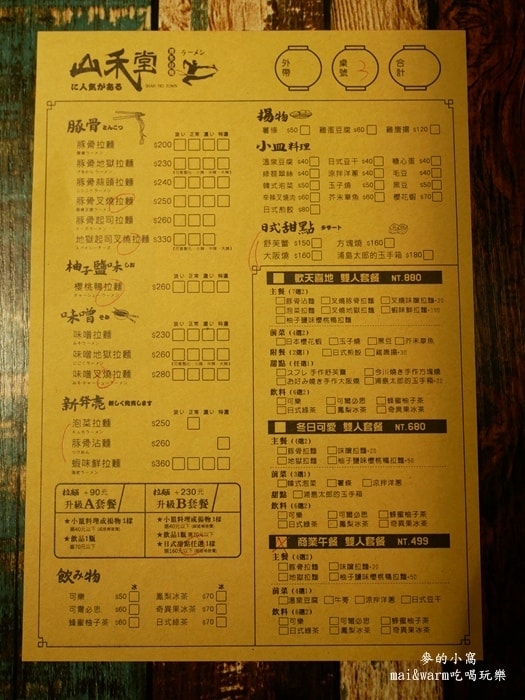 山禾堂
ラーメン
に人気がある
外帶
桌號 3
合計
豚骨 とんこつ
淡い 正常 濃い 特濃
豚骨拉麵 $200
豚骨地獄拉麵 $230
豚骨蒜頭拉麵 $240
豚骨叉燒拉麵 $250
豚骨起司拉麵 $260
地獄起司叉燒拉麵 $330
柚子鹽味 しお
櫻桃鴨拉麵 $260
味噌 みそ
味噌拉麵 $230
味噌地獄拉麵 $260
味噌叉燒拉麵 $280
新発売 新しく発売します
淡い 正常 濃い
泡菜拉麵 $250
豚骨沾麵 $260
蝦味鮮拉麵 $360
拉麵 +90元
升級A套餐
★小皿料理或揚物1樣
★飲品1瓶
拉麵 +230元
升級B套餐
★小皿料理或揚物1樣
★飲品1瓶
★日式甜點任選1樣
飲み物
冰
可樂 $50
可爾必思 $60
蜂蜜柚子茶 $60
冰
鳳梨冰茶 $70
奇異果冰茶 $70
日式綠茶 $70
揚物
薯條 $50 雞蛋豆腐 $60 雞腹揚 $120
小皿料理
溫泉豆腐 $40 日式豆干 $40 糖心蛋 $40
綠龍翠絲 $40 涼拌洋蔥 $40 毛豆 $40
韓式泡菜 $50 玉子燒 $50 黑豆 $50
辛辣叉燒肉 $60 芥末章魚 $60 櫻花蝦 $70
日式煎餃 $80
日式甜點 デザート
舒芙蕾 $150 方塊燒 $160
大阪燒 $160 浦島太郎的玉手箱 $180
歡天喜地 雙人套餐 NT.880
主餐 (7選2)
豚骨沾麵 叉燒豚骨拉麵 叉燒味噌拉麵+20
泡菜拉麵 叉燒地獄拉麵 蝦味鮮拉麵+100
柚子鹽味櫻桃鴨拉麵
前菜 (4選2)
日本櫻花蝦 玉子燒 黑豆 芥末章魚
附餐 (2選1) 日式煎餃 雞腹揚+30
甜點 (任選1)
スフレ 手作舒芙蕾 今川燒き手作方塊燒
お好み燒き手作大阪燒 浦島太郎的玉手箱+20
飲料 (6選2)
可樂 可爾必思 蜂蜜柚子茶
日式綠茶 鳳梨冰茶 奇異果冰茶
冬日可愛 雙人套餐 NT.680
主餐 (4選2)
豚骨拉麵 味噌拉麵+20
地獄拉麵 柚子鹽味櫻桃鴨拉麵+50
前菜 (3選1)
韓式泡菜 薯條 涼拌洋蔥
甜點 浦島太郎的玉手箱
飲料 (6選2)
可樂 可爾必思 蜂蜜柚子茶
日式綠茶 鳳梨冰茶 奇異果冰茶
商業午餐 雙人套餐 NT.499
主餐 (4選2)
豚骨拉麵 味噌拉麵+20
地獄拉麵 柚子鹽味櫻桃鴨拉麵+50
前菜 (4選1)
溫泉豆腐 牛蒡 涼拌洋蔥 日式豆干
飲料 (6選2)
可樂 可爾必思 蜂蜜柚子茶
日式綠茶 鳳梨冰茶 奇異果冰茶
麥的小窩
mai&warm吃喝玩樂